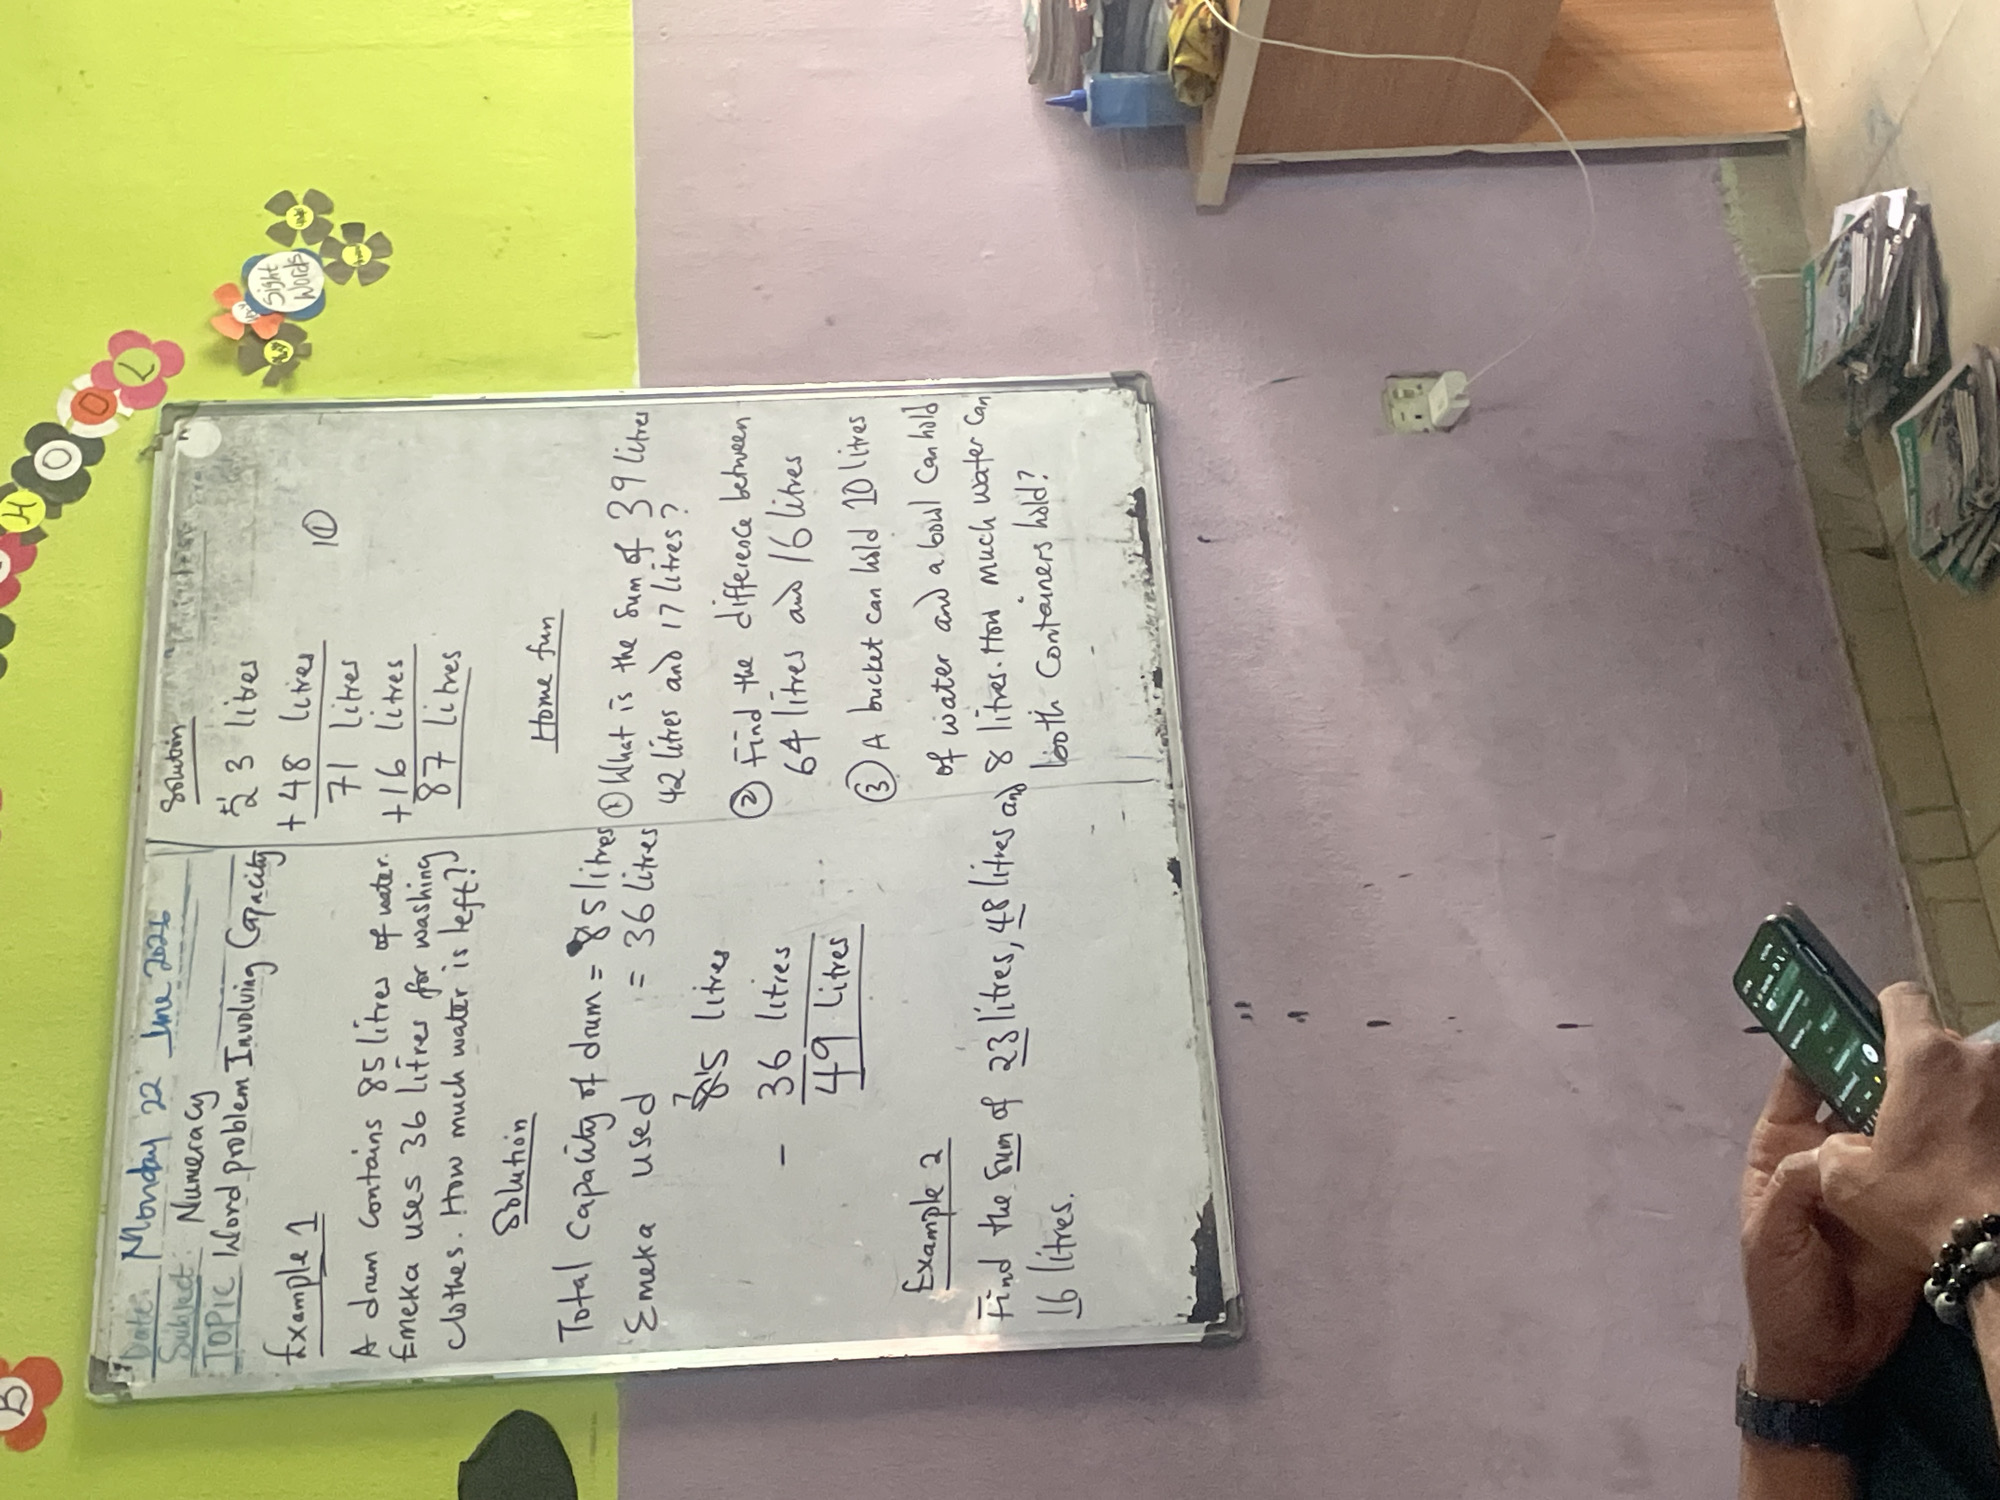 Date: Monday 22 June 2026
Subject: Numeracy
TOPIC Word problem Involving Capacity
Example 1
A drum contains 85 litres of water.
Emeka uses 36 litres for washing
clothes. How much water is left?
Solution
Total Capacity of drum = 85 litres
Emeka used = 36 litres
7
815 litres
- 36 litres
49 litres
Example 2
Find the sum of 23 litres, 48 litres and
16 litres.
Solution
23 litres
+ 48 litres
71 litres
+ 16 litres
87 litres
10
Home fun
① What is the sum of 39 litres
42 litres and 17 litres?
② Find the difference between
64 litres and 16 litres
③ A bucket can hold 10 litres
of water and a bowl can hold
8 litres. How much water can
both containers hold?
B
H
O
O
L
Sight
Words